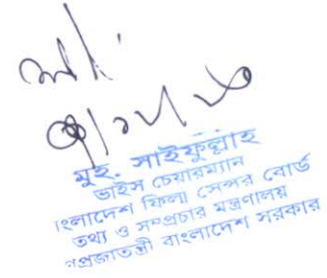 মুহ. সাইফুল্লাহ
ভাইস চেয়ারম্যান
ংলাদেশ ফিল্ম সেন্সর বোর্ড
তথ্য ও সম্প্রচার মন্ত্রণালয়
প্রজাতন্ত্রী বাংলাদেশ সরকার